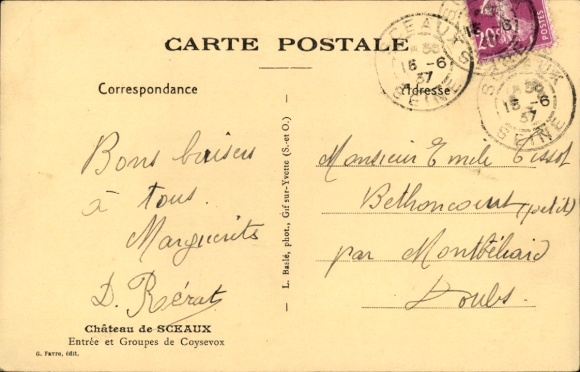 CARTE POSTALE
SCEAUX
15 -6
37
SEINE
20c
POSTES
SCEAUX
15 -6
37
SEINE
Correspondance
Adresse
Bons baisers
à tous.
Marguerite
D. Rérat
L. Baslé, phot., Gif sur-Yvette (S.-et O.)
Monsieur Emile Tissot
Bethoncourt (petit)
par Montbéliard
Doubs.
Château de SCEAUX
Entrée et Groupes de Coysevox
G. Favre, édit.